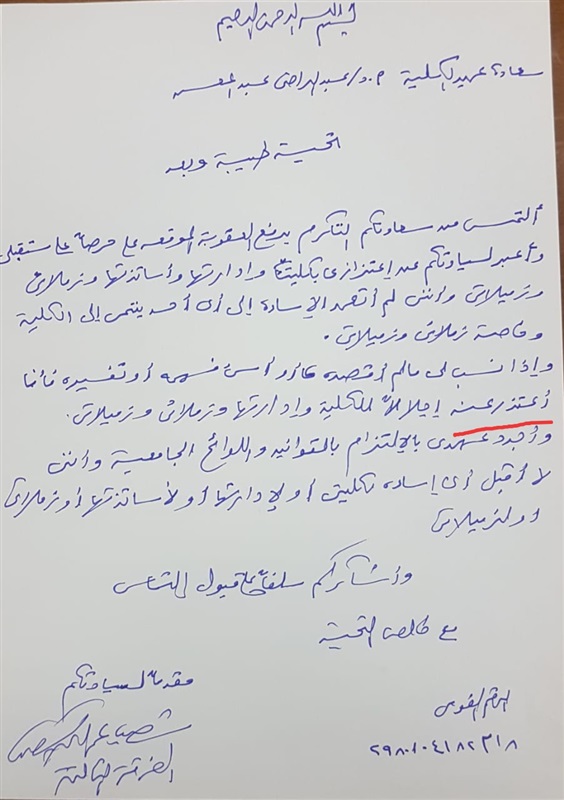 بسم الله الرحمن الرحيم
سعادة عميد الكلية م.د/ عبد الراضى عبد المحسن
تحية طيبة وبعد
ألتمس من سعادتكم التكرم برفع العقوبة الموقعه على حرصاً على مستقبلى
وأعبر لسيادتكم عن إعتزازى بكليتنا وإدارتها وأساتذتها وزملائى
وزميلاتى وأننى لم أتعمد الإساءة إلى أى أحد ينتمى إلى الكلية
وخاصة زملائى وزميلاتى.
وإذا نسب لى مالم أقصده أو أسئ فهمه أو تفسيره فأنا
أعتذر عنه إجلالاً للكلية وإدارتها وزملائى وزميلاتى.
وأجدد عهدى بالإلتزام بالقوانين واللوائح الجامعية وأننى
لا أقبل أى إساءه لكليتى أو لإدارتها أو لأساتذتها أو زملائى
أو لزميلاتى
وأشكركم سلفاً على قبول إلتماسى
مع خالص التحية
مقدمة لسيادتكم
الفرقة الثالثة
الرقم القومى